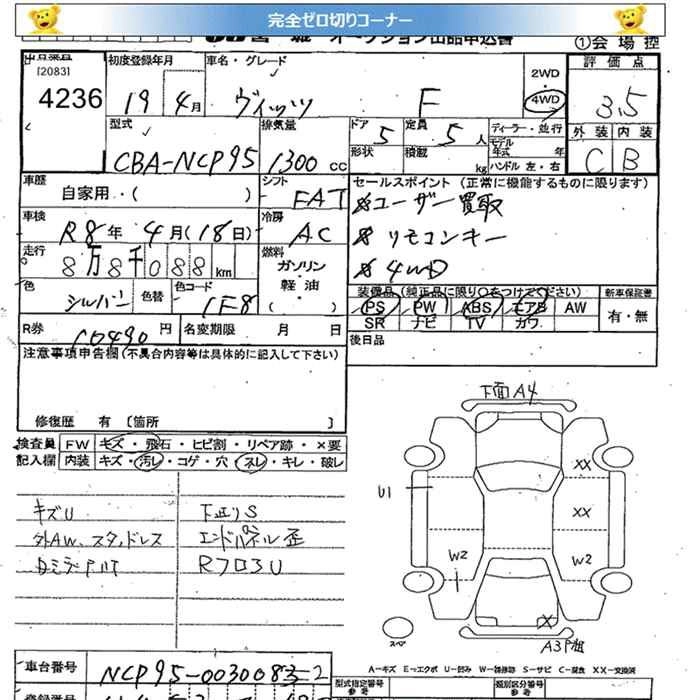 完全ゼロ切りコーナー
オークション出品申込書
①会場控
[2083]
4236
初度登録年月
19年4月
車名・グレード
ヴィッツ F
2WD
・
4WD
評価点
3.5
外装 内装
C B
型式
CBA-NCP95
排気量
1300 CC
ドア 5
定員 5人
形状
積載 kg
ディーラー・並行
モデル年式 年
ハンドル 左・右
車歴
自家用・( )
シフト
FAT
セールスポイント (正常に機能するものに限ります)
ユーザー買取
リモコンキー
4WD
車検
R8年 4月(18日)
冷房
AC
走行
8万8千088km
燃料
ガソリン
軽油
( )
色
シルバー
色替
色コード
1F8
装備品(純正品に限り○をつけてください)
新車保証書
PS PW ABS エアB AW
SR ナビ TV カワ
有・無
R券
10490円
名変期限 月 日
後日品
注意事項申告欄(不具合内容等は具体的に記入して下さい)
修復歴 有 〔箇所 〕
検査員 FW キズ・飛石・ヒビ割・リペア跡・×要
記入欄 内装 キズ・汚レ・コゲ・穴・スレ・キレ・破レ
キズU
外AW、スタッドレス
下廻りS
エンドパネル歪
RフロアU
下面A4
U1
XX
XX
W2
W2
X
スペア
A-キズ E-エクボ U-凹み W-補修跡 S-サビ C-腐食 XX-交換済
車台番号
NCP95-0030083-2
型式指定番号
参考
類別区分番号
参考
登録番号